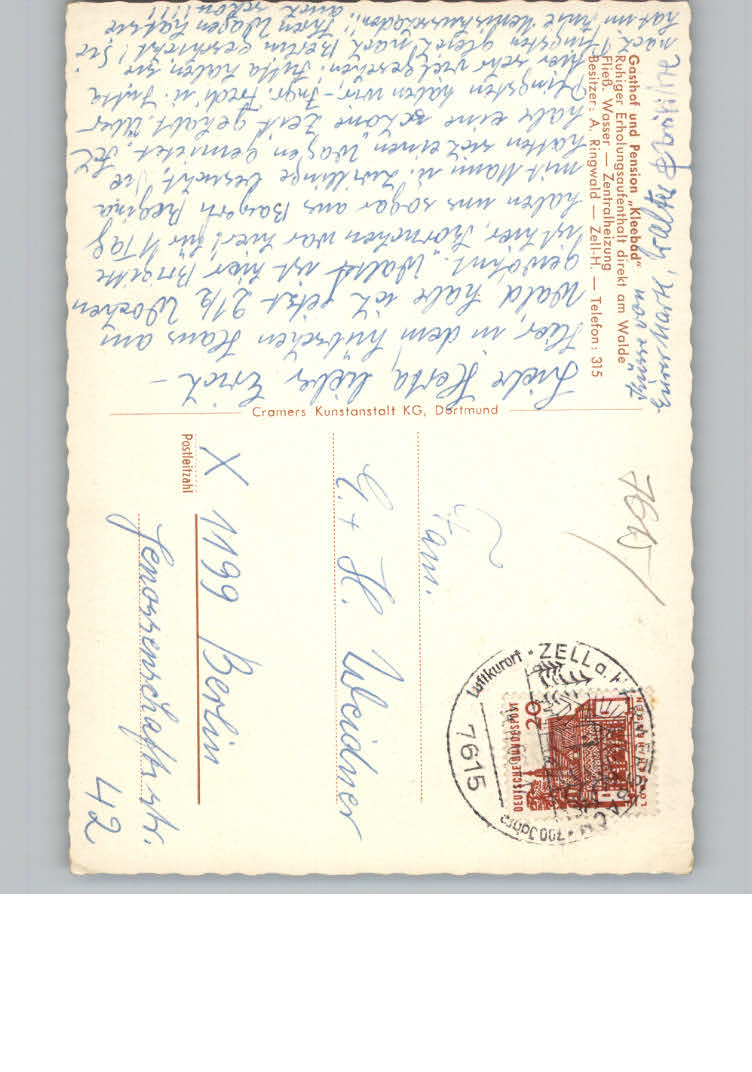 Gasthof und Pension „Kleebad"
Ruhiger Erholungsaufenthalt direkt am Walde
Fließ. Wasser — Zentralheizung
Besitzer: A. Ringwald — Zell-H. — Telefon: 315
Cramers Kunstanstalt KG, Dortmund
Liebe Herta, lieber Erich –
Hier in dem hübschen Haus am
Wald habe ich jetzt 2 1/2 Wochen
gewohnt. Walter ist hier Brigitte
ist hier, war hier! für 1 Tag
haben uns sogar aus Bayern Regina
mit Mann u. Zwillinge besucht, sie
hatten sich einen Wagen gemietet. Ich
habe eine schöne Zeit gehabt. Über
Pfingsten haben wir Ingr. Fredi u. Jutta
hier sehr viel gesehen. Jutta haben sie
nach Pfingsten gleich nach Berlin geschickt! Sie
hat nun ihre
Ihren Wagen hat sie
auch schon!!!
Grüsse von
Walter Brigitte
Fam.
E. + H. Weidner
X 1199 Berlin
Postleitzahl
Genossenschaftsstr.
42
7615
Luftkurort · ZELL a. HARMERSBACH · 700 Jahre
7615
DEUTSCHE BUNDESPOST
20
LORSCH HESSEN